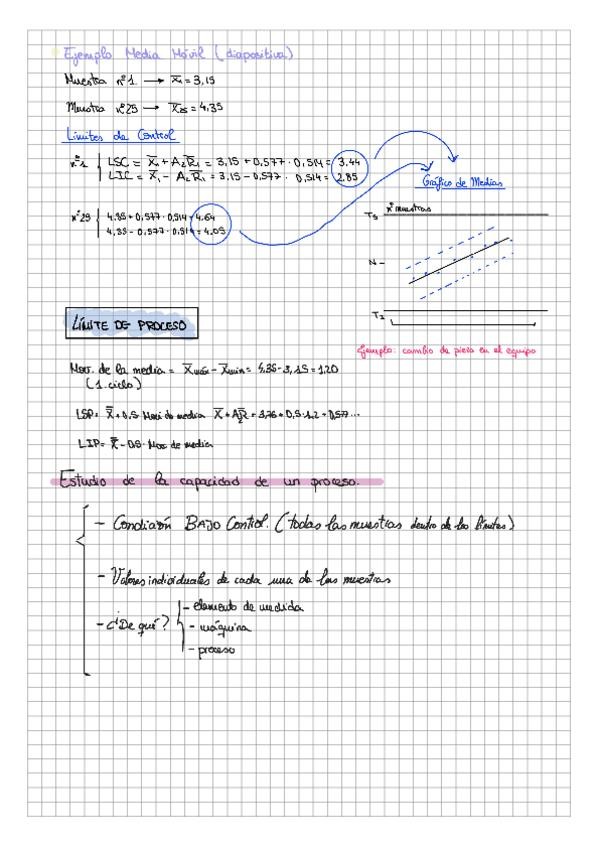 Ejemplo Media Móvil (diapositiva)
Muestra nº1 → X̄₁ = 3,15
Muestra nº25 → X̄₂₅ = 4,35
Límites de Control
nº1 { LSC = X̄₁ + A₂R̄₁ = 3,15 + 0,577 · 0,514 = 3.44
LIC = X̄₁ - A₂R̄₁ = 3,15 - 0,577 · 0,514 = 2.85
Gráfico de Medias
nº25 { 4.35 + 0,577 · 0,514 = 4.64
4,35 - 0,577 · 0,514 = 4.05
Ts nº muestras
N -
TI
LÍMITE DE PROCESO
Ejemplo: cambio de pieza en el equipo
Mov. de la media = X̄máx - X̄mín = 4,35 - 3,15 = 1,20
(1.ciclo)
LSP = X̿ + 0,5 · Movi de media X̄ + A₂R̄ = 3,76 + 0,5 · 1,2 + 0,577 ...
LIP = X̿ - 0,5 · Mov de media
Estudio de la capacidad de un proceso.
- Condición BAJO Control. (todas las muestras dentro de los límites)
- Valores individuales de cada una de las muestras
- ¿De qué? - elemento de medida
- máquina
- proceso